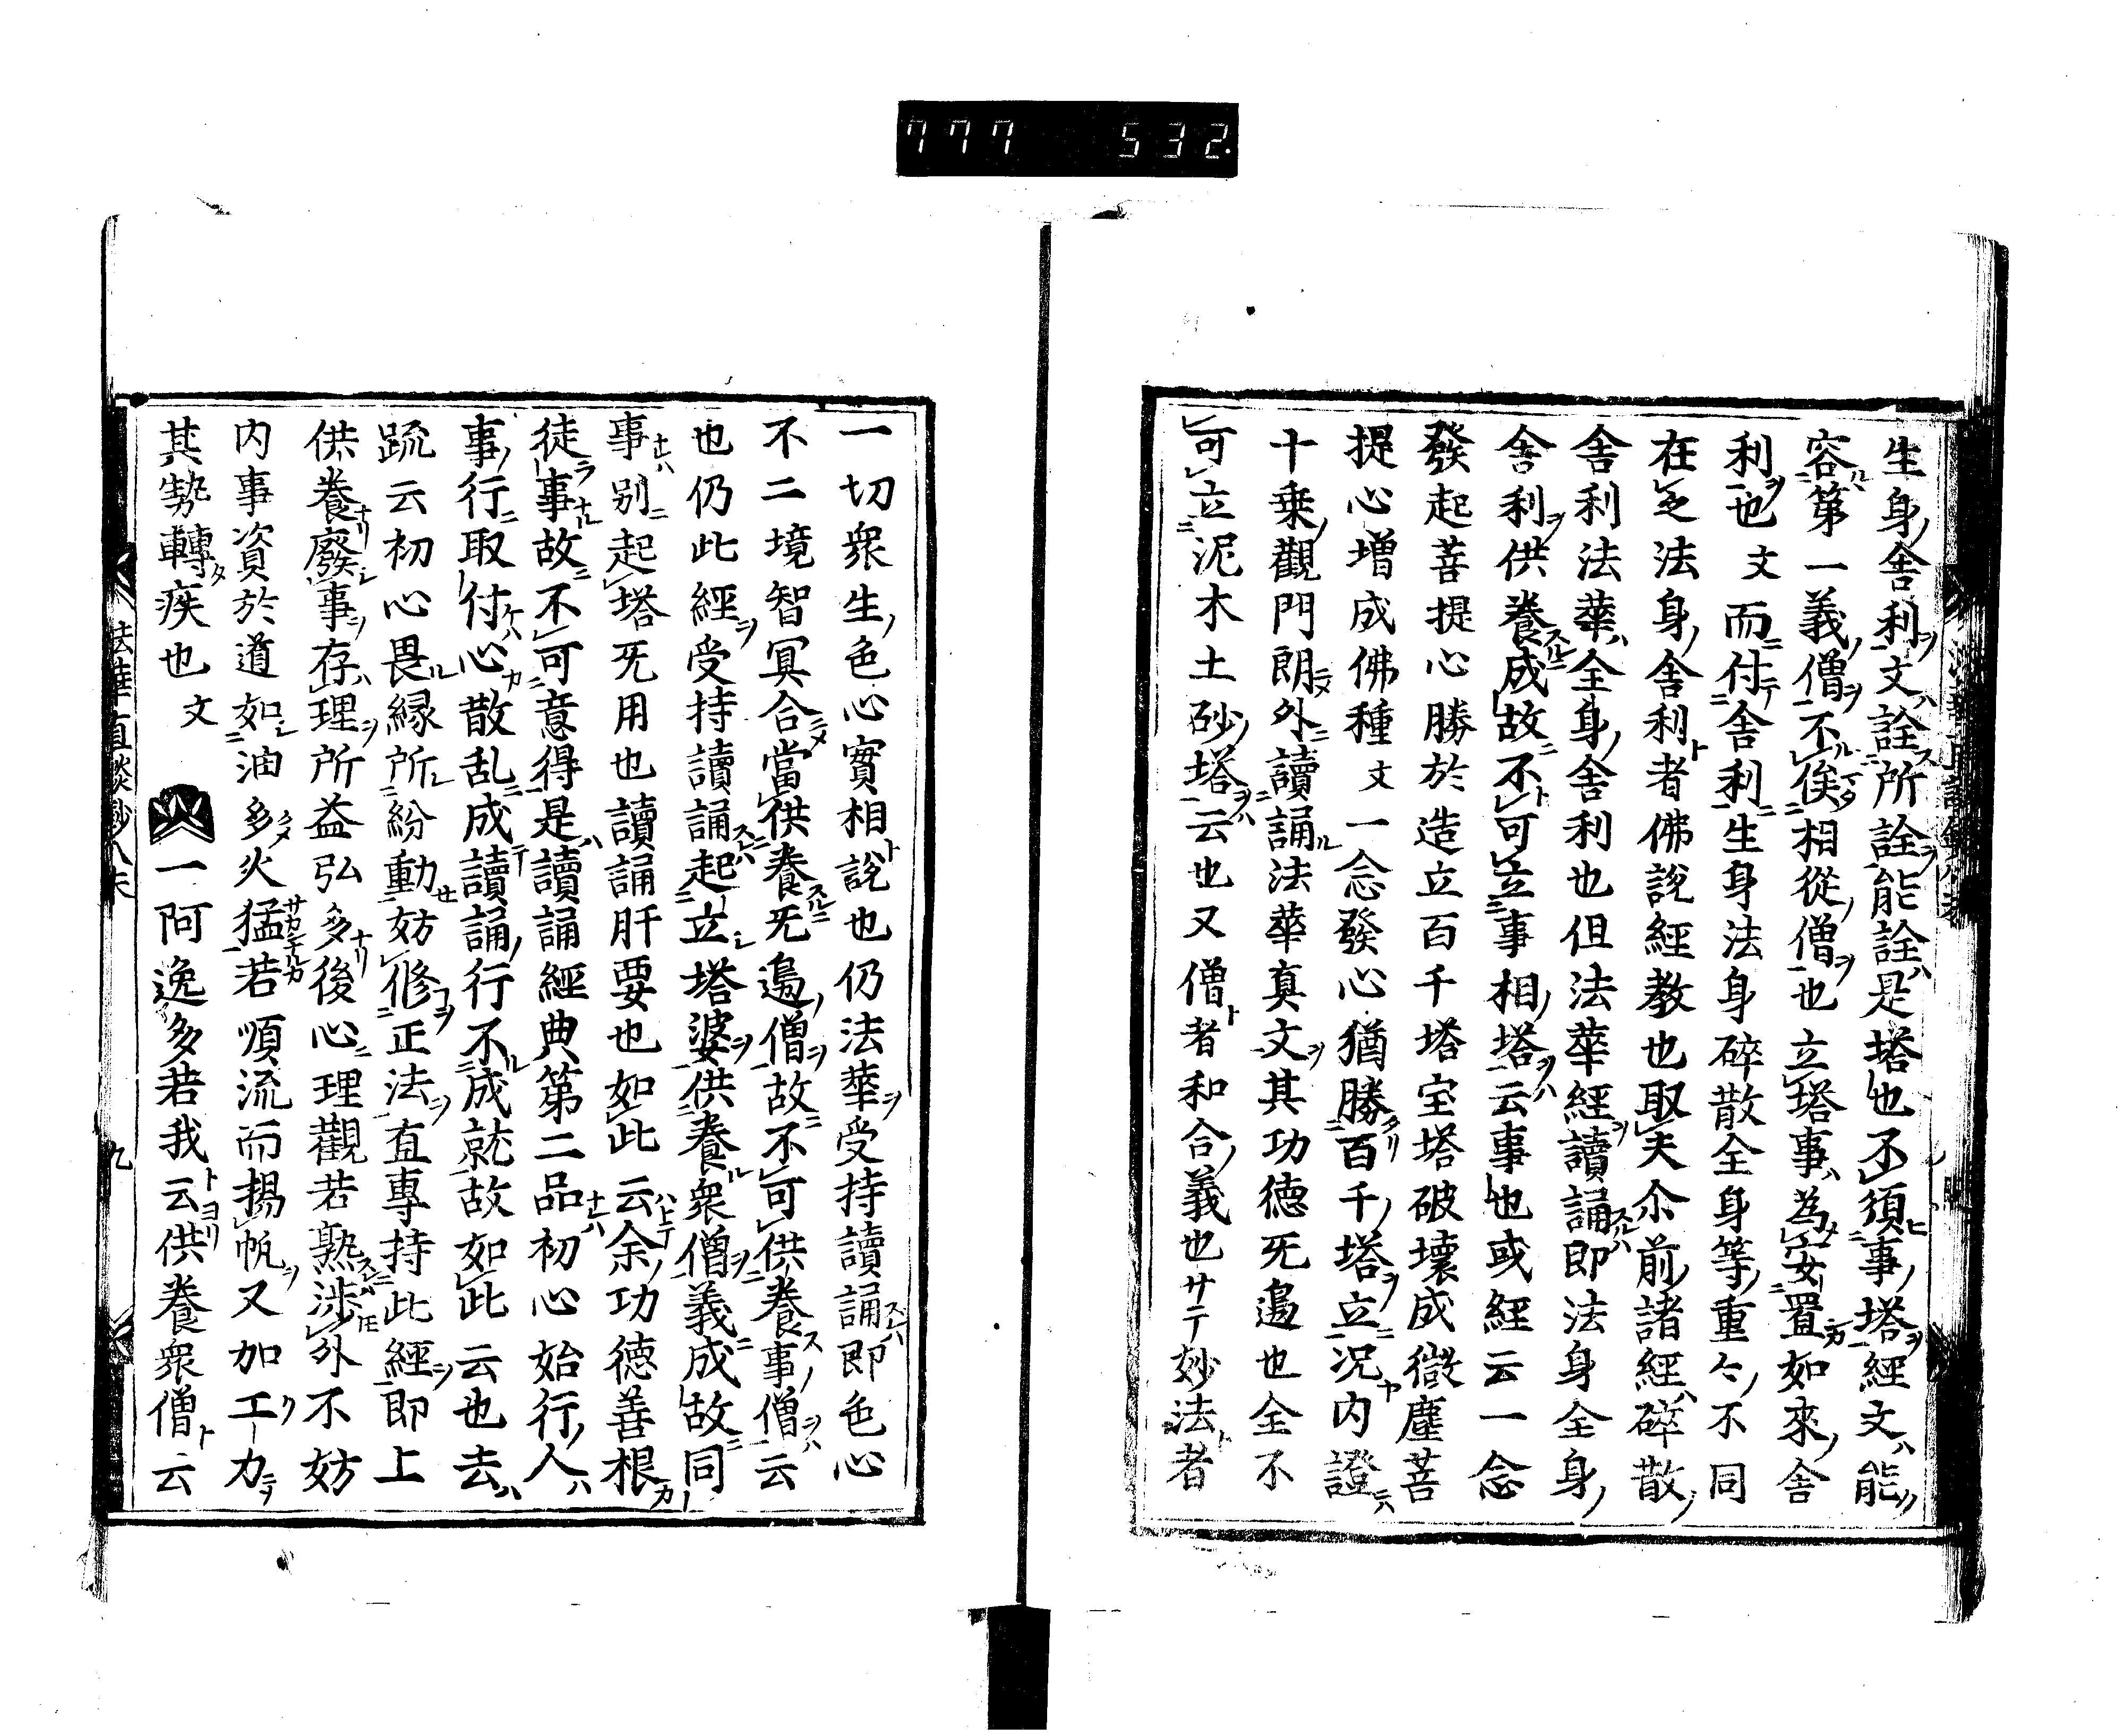 777 532
生身舎利文詮所詮能詮是塔也不須事塔経文能
容第一義僧不俟相從僧也立塔事為安置如來舎
利也文而付舎利生身法身碎散全身等重々不同
在之法身舎利者佛説經教也取夫尒前諸經碎散
舎利法華全身舎利也但法華經讀誦即法身全身
舎利供養成故不可立事相塔云事也或經云一念
發起菩提心勝於造立百千塔宝塔破壊成微塵菩
提心増成佛種文一念發心猶勝百千塔立况内證
十乗觀門朗外讀誦法華真文其功徳旡邉也全不
可立泥木土砂塔云也又僧者和合義也サテ妙法者
一切衆生色心實相説也仍法華受持讀誦即色心
不二境智冥合當供養旡邉僧故不可供養事僧云
也仍此經受持讀誦起立塔婆供養衆僧義成故同
事別起塔旡用也讀誦肝要也如此云余功徳善根
徒事故不可意得是讀誦經典第二品初心始行人
事行取付心散乱成讀誦行不成就故如此云也去
䟽云初心畏縁所紛動妨修正法直專持此經即上
供養廢事存理所益弘多後心理觀若熟渉外不妨
内事資於道如油多火猛若順流而揚帆又加工力
其勢轉疾也文　一阿逸多若我云供養衆僧云
法華直談鈔八末　九